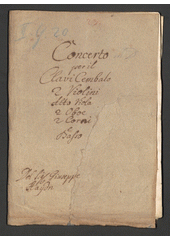 Concerto
per il
Clavi Cembalo
2 Violini
Alto Viola
2 Oboe
2 Corni
Basso
Del Sig. Giuseppe
Haydn